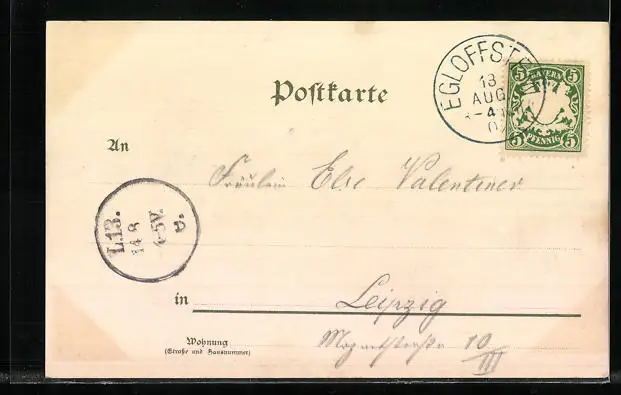 Postkarte
EGLOFFST
13
AUG
4
0
5 BAYERN 5
5 PFENNIG 5
An
Fräulein Else Valentiner
L.13.
14 8
4-5V.
in
Leipzig
Wohnung
(Straße und Hausnummer)
Mozartstraße 10
III